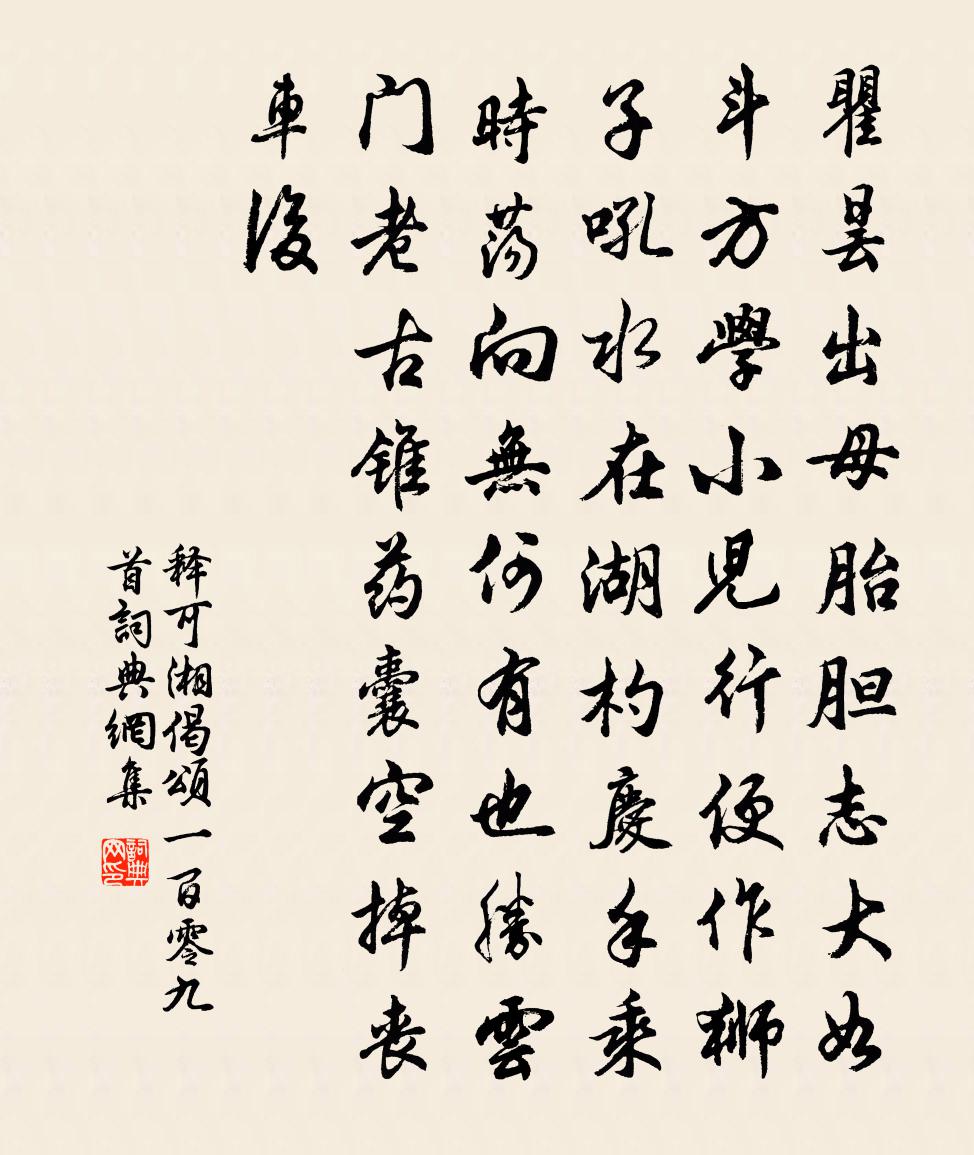 瞿曇出母胎胆志大如
斗方學小兒行便作獅
子吼水在湖杓慶手乘
時蕩向無何有也勝雲
门老古錐药囊空掉丧
車後
释可湘偈頌一百零九
首詞典網集
詞典网印